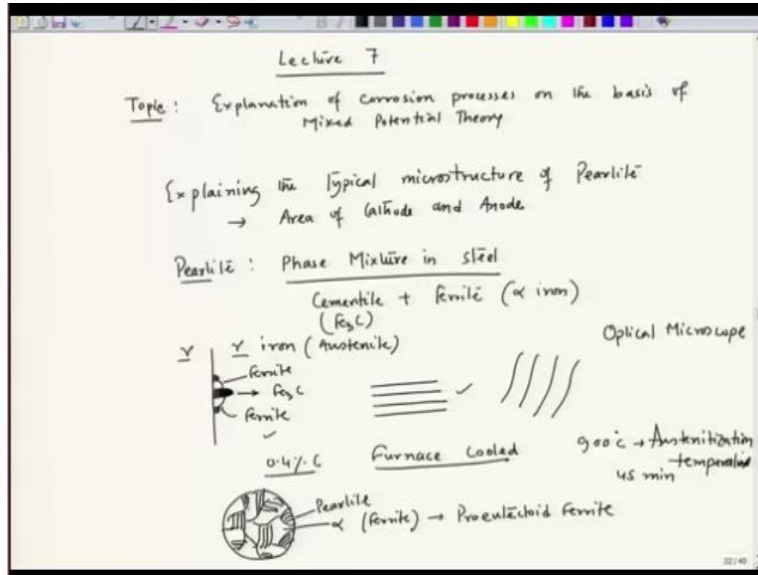 Lecture 7
Topic: Explanation of corrosion processes on the basis of
Mixed Potential Theory
Explaining the Typical microstructure of Pearlite
→ Area of Cathode and Anode
Pearlite: Phase Mixture in steel
Cementite + Ferrite (α iron)
(Fe3C)
γ γ iron (Austenite)
Optical Microscope
Ferrite
→ Fe3C
Ferrite
0.4% C Furnace Cooled
900°C → Austenitization
temperature
45 min
Pearlite
α (Ferrite) → Proeutectoid Ferrite
22/40